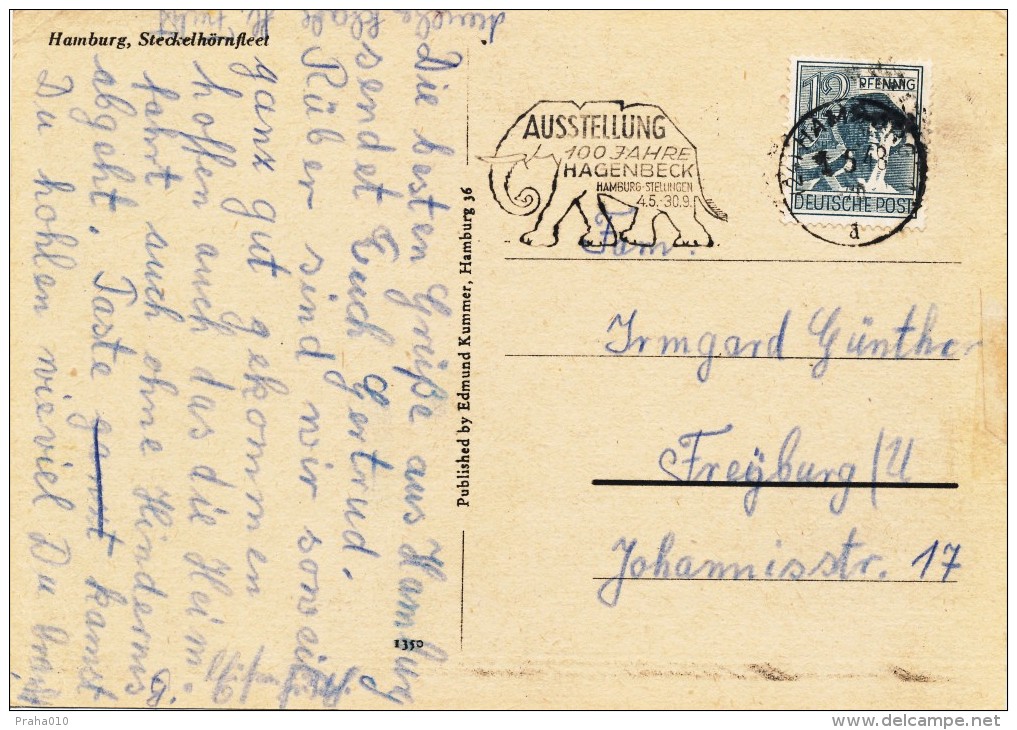 Hamburg, Steckelhörnfleet
Die besten Grüße aus Hamburg
sendet Euch Gertrud.
Rüber sind wir soweit
ganz gut gekommen
hoffen auch das die Heim-
fahrt auch ohne Hindernis
abgeht. Taste kannst
Du hohlen wieviel Du
Published by Edmund Kummer, Hamburg 36
1350
AUSSTELLUNG
100 JAHRE
HAGENBECK
HAMBURG-STELLINGEN
4.5.-30.9.
12 PFENNIG
DEUTSCHE POST
a
Fam.
Irmgard Günther
Freyburg/U
Johannisstr. 17
Praha010
delcampe.net